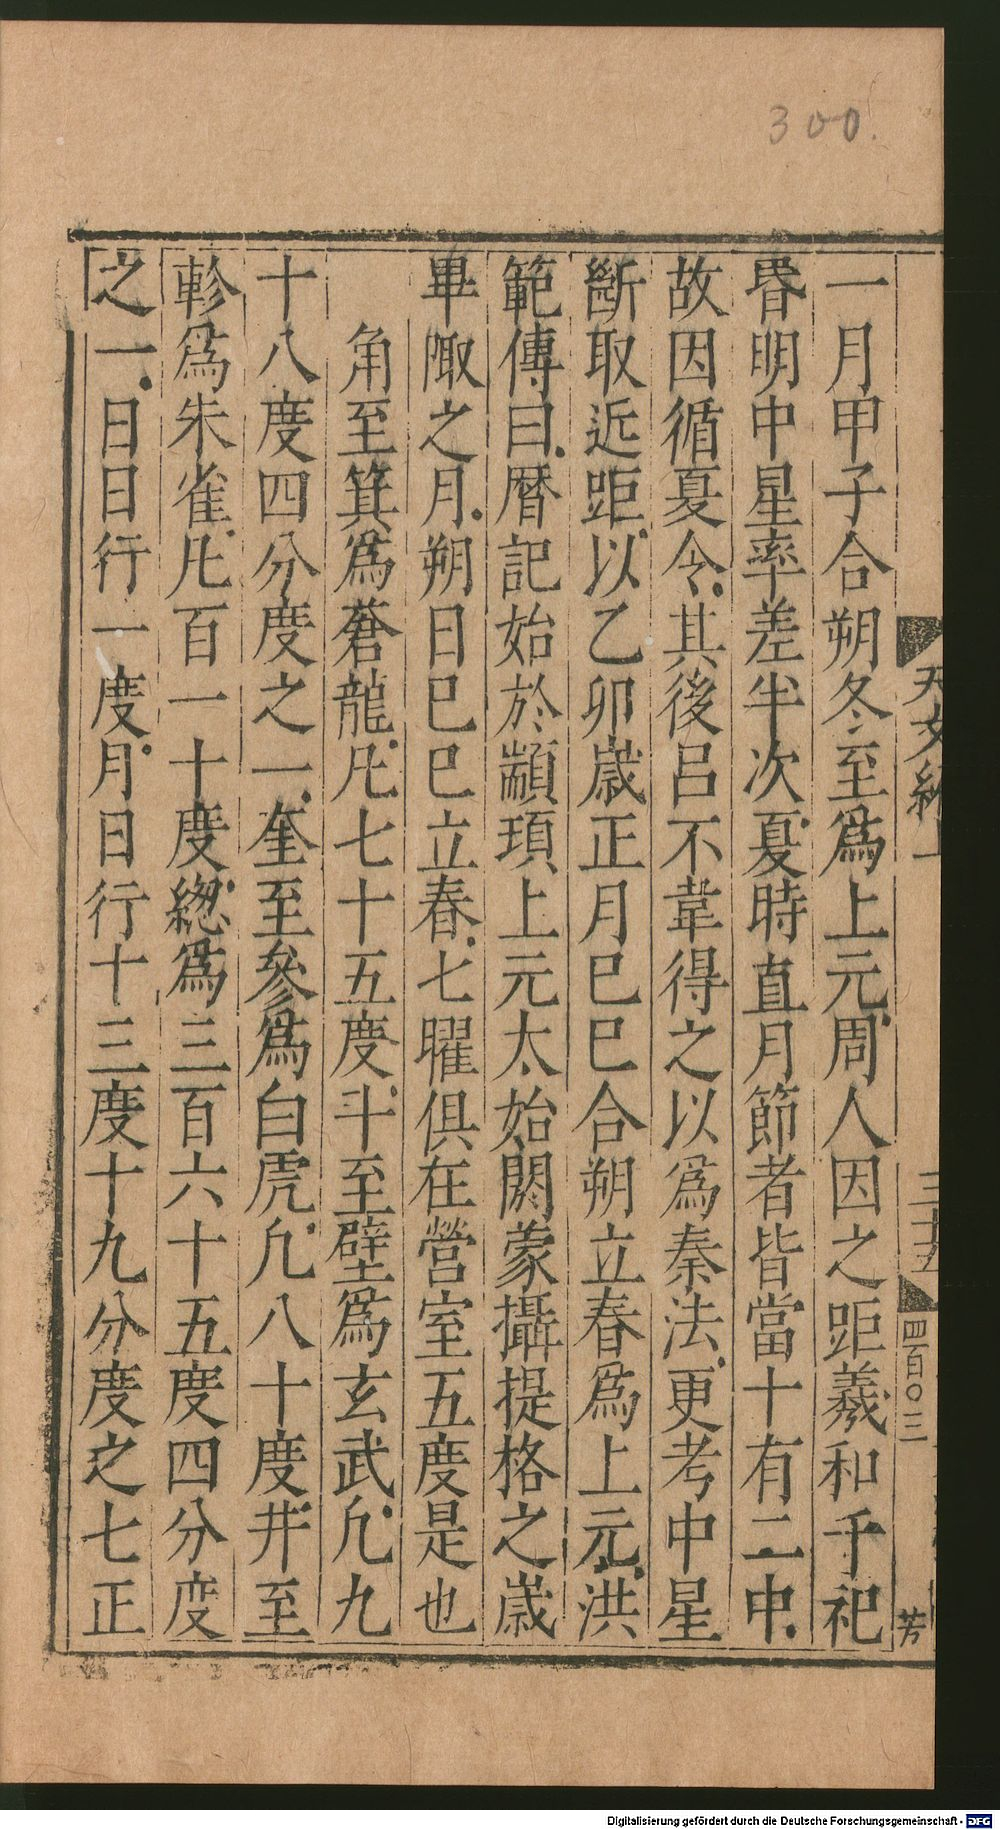 300.
天文紀一
三十五
四百〇三
芳
一月甲子合朔冬至爲上元周人因之距羲和千祀
昬明中星率差半次夏時直月節者皆當十有二中
故因循夏令其後呂不韋得之以爲秦法更考中星
斷取近距以乙卯歲正月己巳合朔立春爲上元洪
範傳曰曆記始於顓頊上元太始閼蒙攝提格之歲
畢陬之月朔日己巳立春七曜俱在營室五度是也
角至箕爲蒼龍凡七十五度斗至壁爲玄武凡九
十八度四分度之一奎至參爲白虎凡八十度井至
軫爲朱雀凡百一十度緫爲三百六十五度四分度
之一日日行一度月日行十三度十九分度之七正
Digitalisierung gefördert durch die Deutsche Forschungsgemeinschaft - DFG